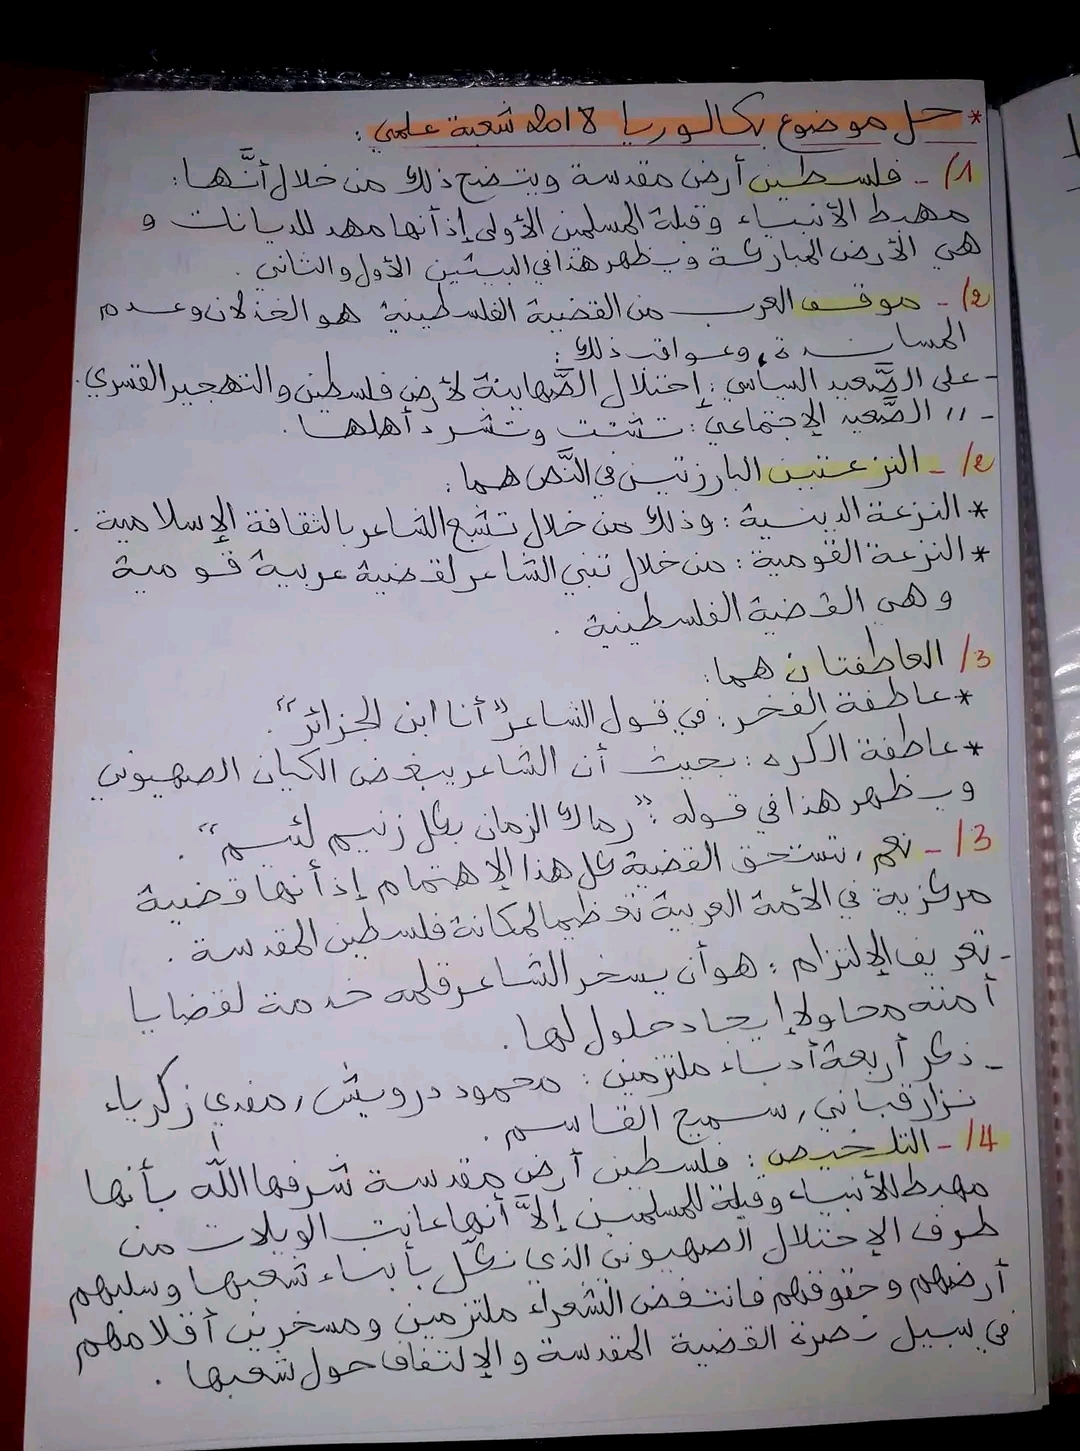 * حل موضوع بكالوريا 2018 شعبة علمي :
1/ - فلسطين أرض مقدسة ويتضح ذلك من خلال أنَّها :
مهبط الأنبياء وقبلة المسلمين الأولى إذ أنها مهد للديانات و
هي الأرض المباركة ويظهر هذا في البيتين الأول والثاني .
2/ - موقف العرب من القضية الفلسطينية هو الخذلان وعدم
المساندة، وعواقب ذلك :
- على الصَّعيد السياسي : إحتلال الصَّهاينة لأرض فلسطين والتهجير القسري .
- // الصَّعيد الإجتماعي : تشتت وتشرد أهلها .
2/ - النزعتين البارزتين في النَّص هما :
* النزعة الدينية : وذلك من خلال تشبع الشاعر بالثقافة الإسلامية .
* النزعة القومية : من خلال تبني الشاعر لقضية عربية قومية
وهي القضية الفلسطينية .
3/ العاطفتان هما :
* عاطفة الفخر : في قول الشاعر "أنا ابن الجزائر" .
* عاطفة الكره : بحيث أن الشاعر يبغض الكيان الصهيوني
ويظهر هذا في قوله : "رماك الزمان بكل زنيم لئيم" .
3/ - نعم، تستحق القضية كل هذا الإهتمام إذ أنها قضية
مركزية في الأمة العربية تعظيما لمكانة فلسطين المقدسة .
- تعريف الإلتزام : هو أن يسخر الشاعر قلمه خدمة لقضايا
أمته محاولا إيجاد حلول لها .
- ذكر أربعة أدباء ملتزمين : محمود درويش، مفدي زكرياء
نزار قباني، سميح القاسم .
4/ - التلخيص : فلسطين أرض مقدسة شرفها الله بأنها
مهبط للأنبياء وقبلة للمسلمين إلاَّ أنها عانت الويلات من
طرف الإحتلال الصهيوني الذي نكّل بأبناء شعبها وسلبهم
أرضهم وحقوقهم فانتفض الشعراء ملتزمين ومسخرين أقلامهم
في سبيل نصرة القضية المقدسة والإلتفاف حول شعبها .